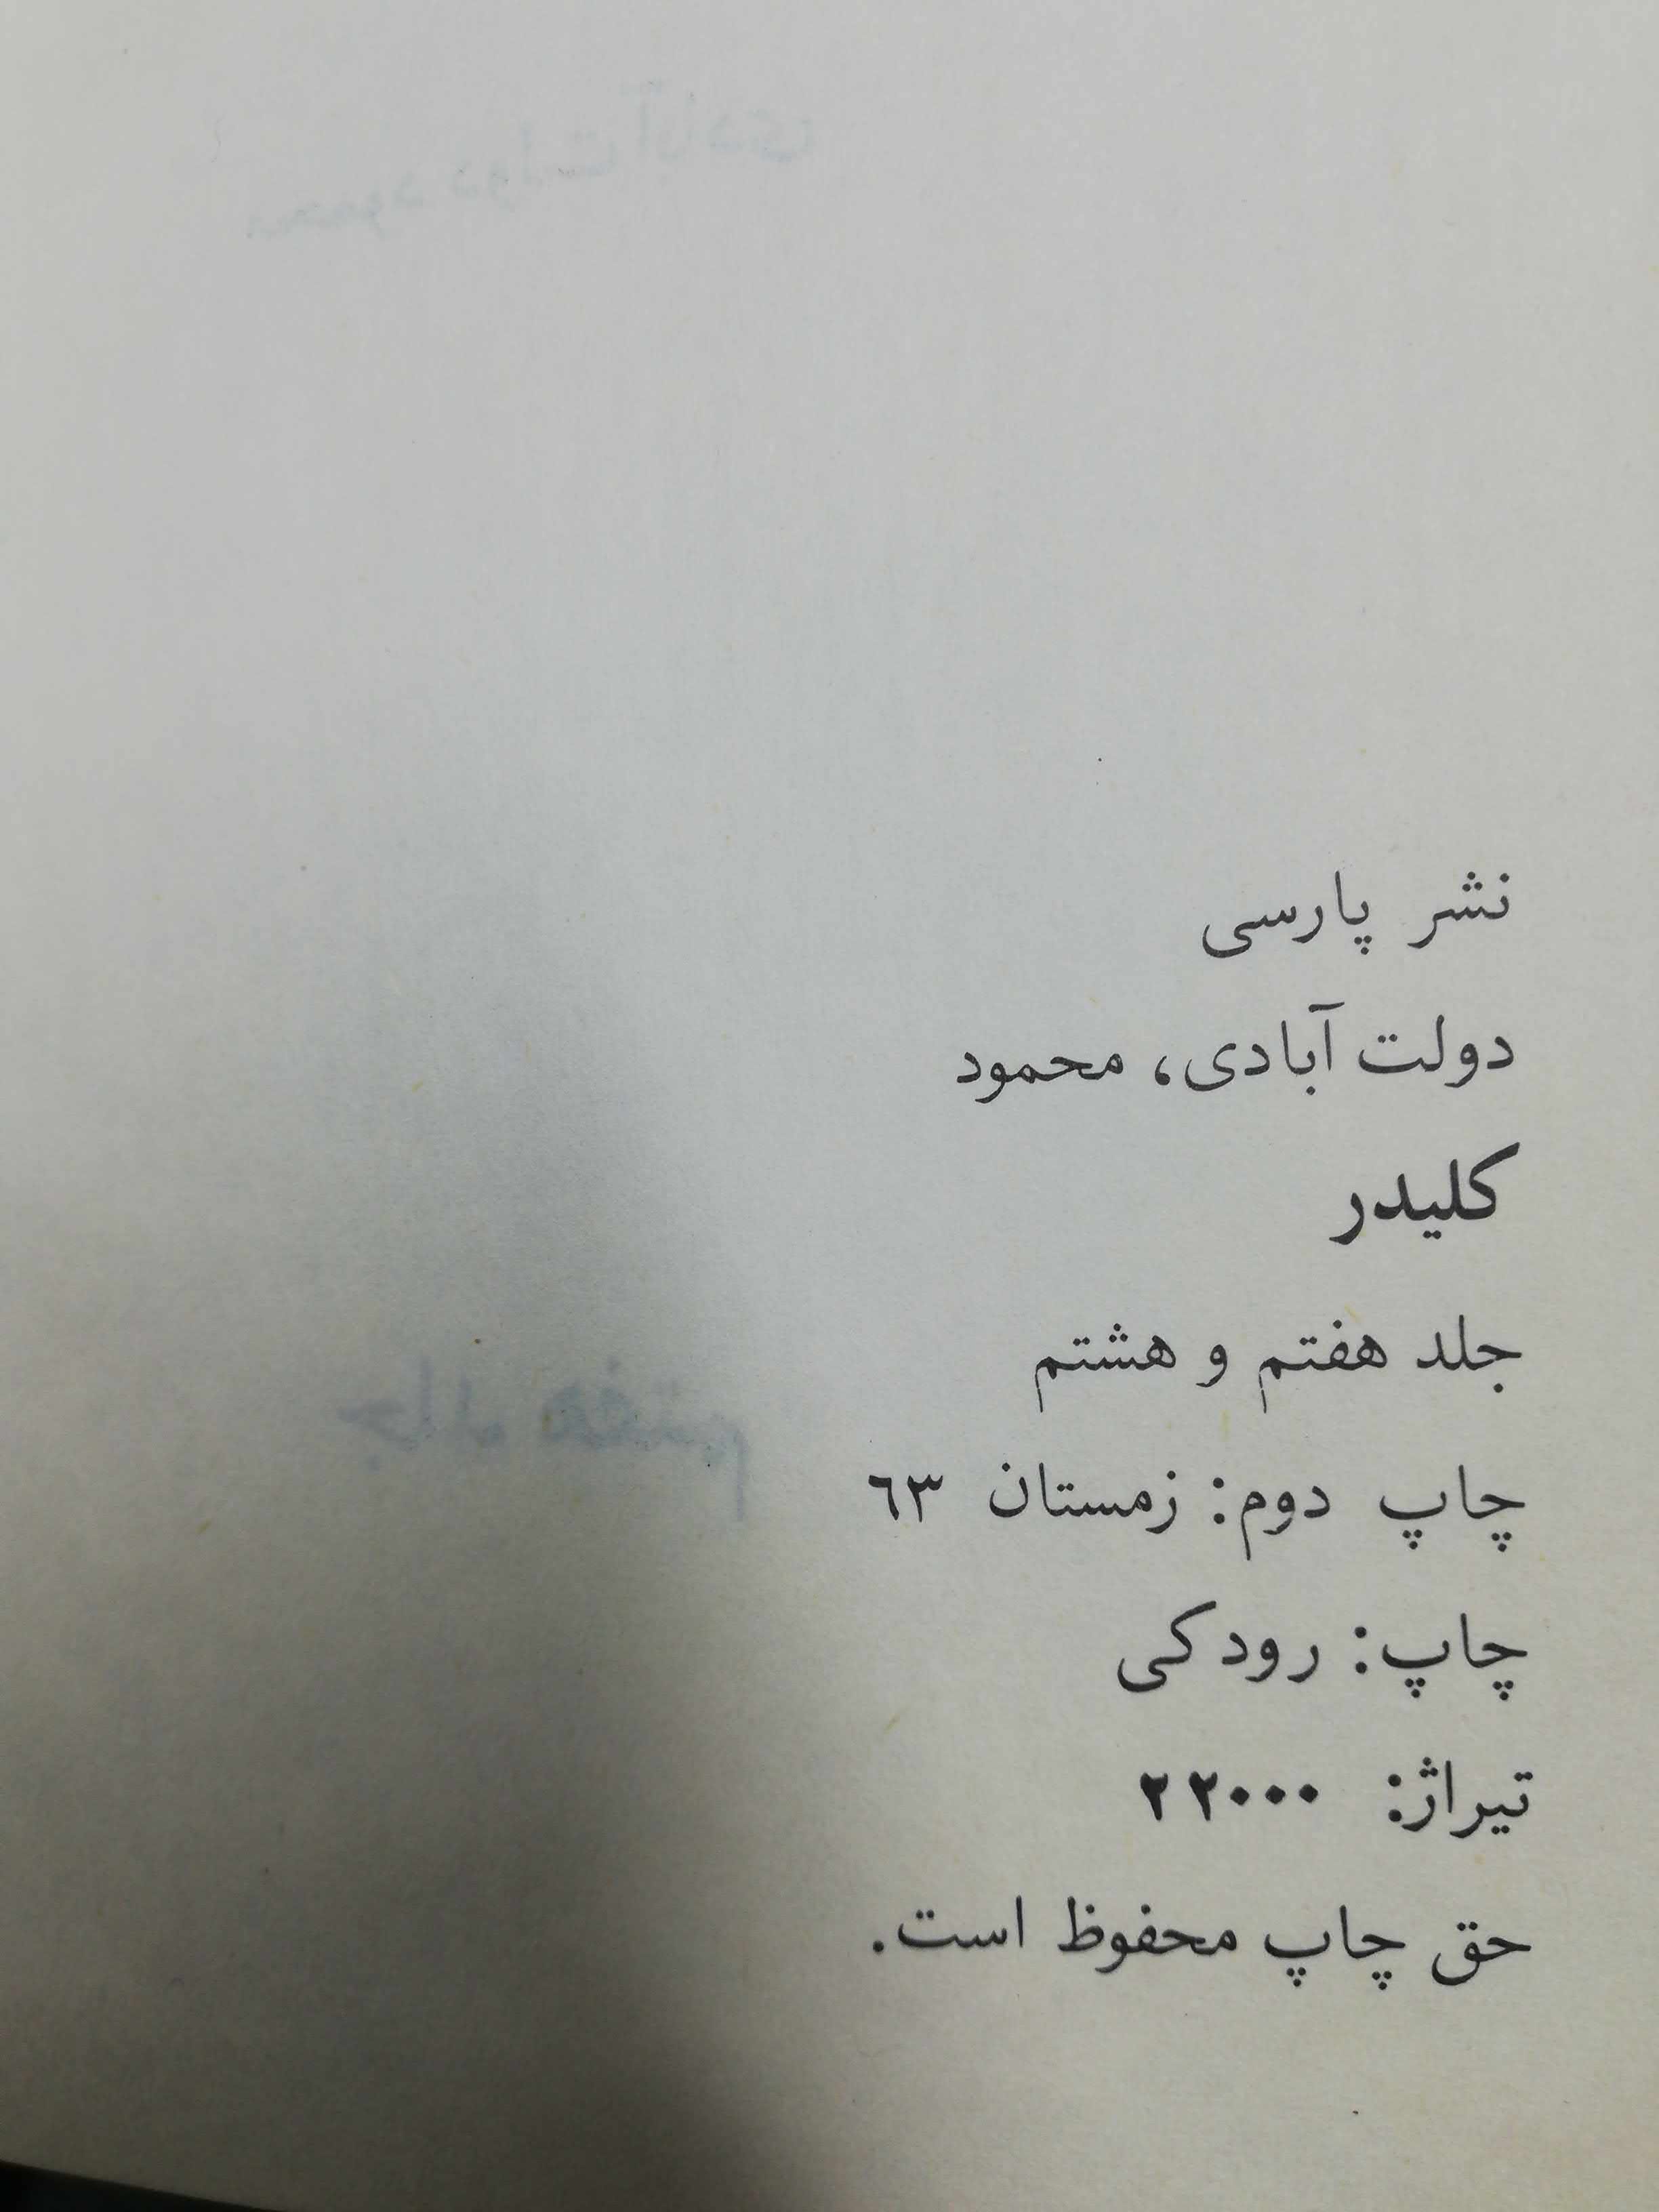 نشر پارسی
دولت آبادی، محمود
کلیدر
جلد هفتم و هشتم
چاپ دوم: زمستان ٦٣
چاپ: رودکی
تیراژ: ۲۲۰۰۰
حق چاپ محفوظ است.